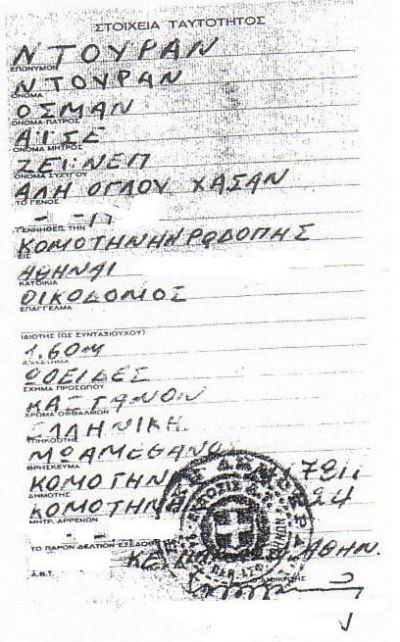 ΣΤΟΙΧΕΙΑ ΤΑΥΤΟΤΗΤΟΣ
ΝΤΟΥΡΑΝ
ΕΠΩΝΥΜΟΝ
ΝΤΟΥΡΑΝ
ΟΝΟΜΑ
ΟΣΜΑΝ
ΟΝΟΜΑ ΠΑΤΡΟΣ
ΑΪΣΕ
ΟΝΟΜΑ ΜΗΤΡΟΣ
ΖΕΪΝΕΠ
ΟΝΟΜΑ ΣΥΖΥΓΟΥ
ΑΛΗ ΟΓΛΟΥ ΧΑΣΑΝ
ΤΟ ΓΕΝΟΣ
ΓΕΝΝΗΘΕΙΣ ΤΗΝ
ΚΟΜΟΤΗΝΗ ΡΟΔΟΠΗΣ
ΕΙΣ
ΑΘΗΝΑΙ
ΚΑΤΟΙΚΙΑ
ΟΙΚΟΔΟΜΟΣ
ΕΠΑΓΓΕΛΜΑ
ΙΔΙΟΤΗΣ (ΩΣ ΣΥΝΤΑΞΙΟΥΧΟΥ)
1,60Μ
ΩΟΕΙΔΕΣ
ΣΧΗΜΑ ΠΡΟΣΩΠΟΥ
ΚΑΣΤΑΝΟΝ
ΧΡΩΜΑ ΟΦΘΑΛΜΩΝ
ΕΛΛΗΝΙΚΗ
ΜΩΑΜΕΘΑΝΟ
ΘΡΗΣΚΕΥΜΑ
ΚΟΜΟΤΗΝ
ΔΗΜΟΤΗΣ
ΚΟΜΟΤΗΝ
ΜΗΤΡ. ΑΡΡΕΝΩΝ
ΤΟ ΠΑΡΟΝ ΔΕΛΤΙΟΝ ΕΞΕΔΟΘΗ
ΑΘΗΝ.
Α.Β.Τ.